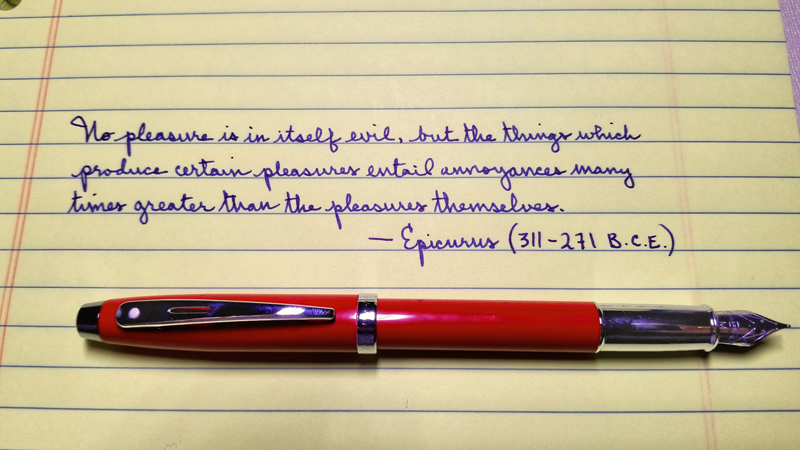 No pleasure is in itself evil, but the things which
produce certain pleasures entail annoyances many
times greater than the pleasures themselves.
— Epicurus (311-271 B.C.E.)